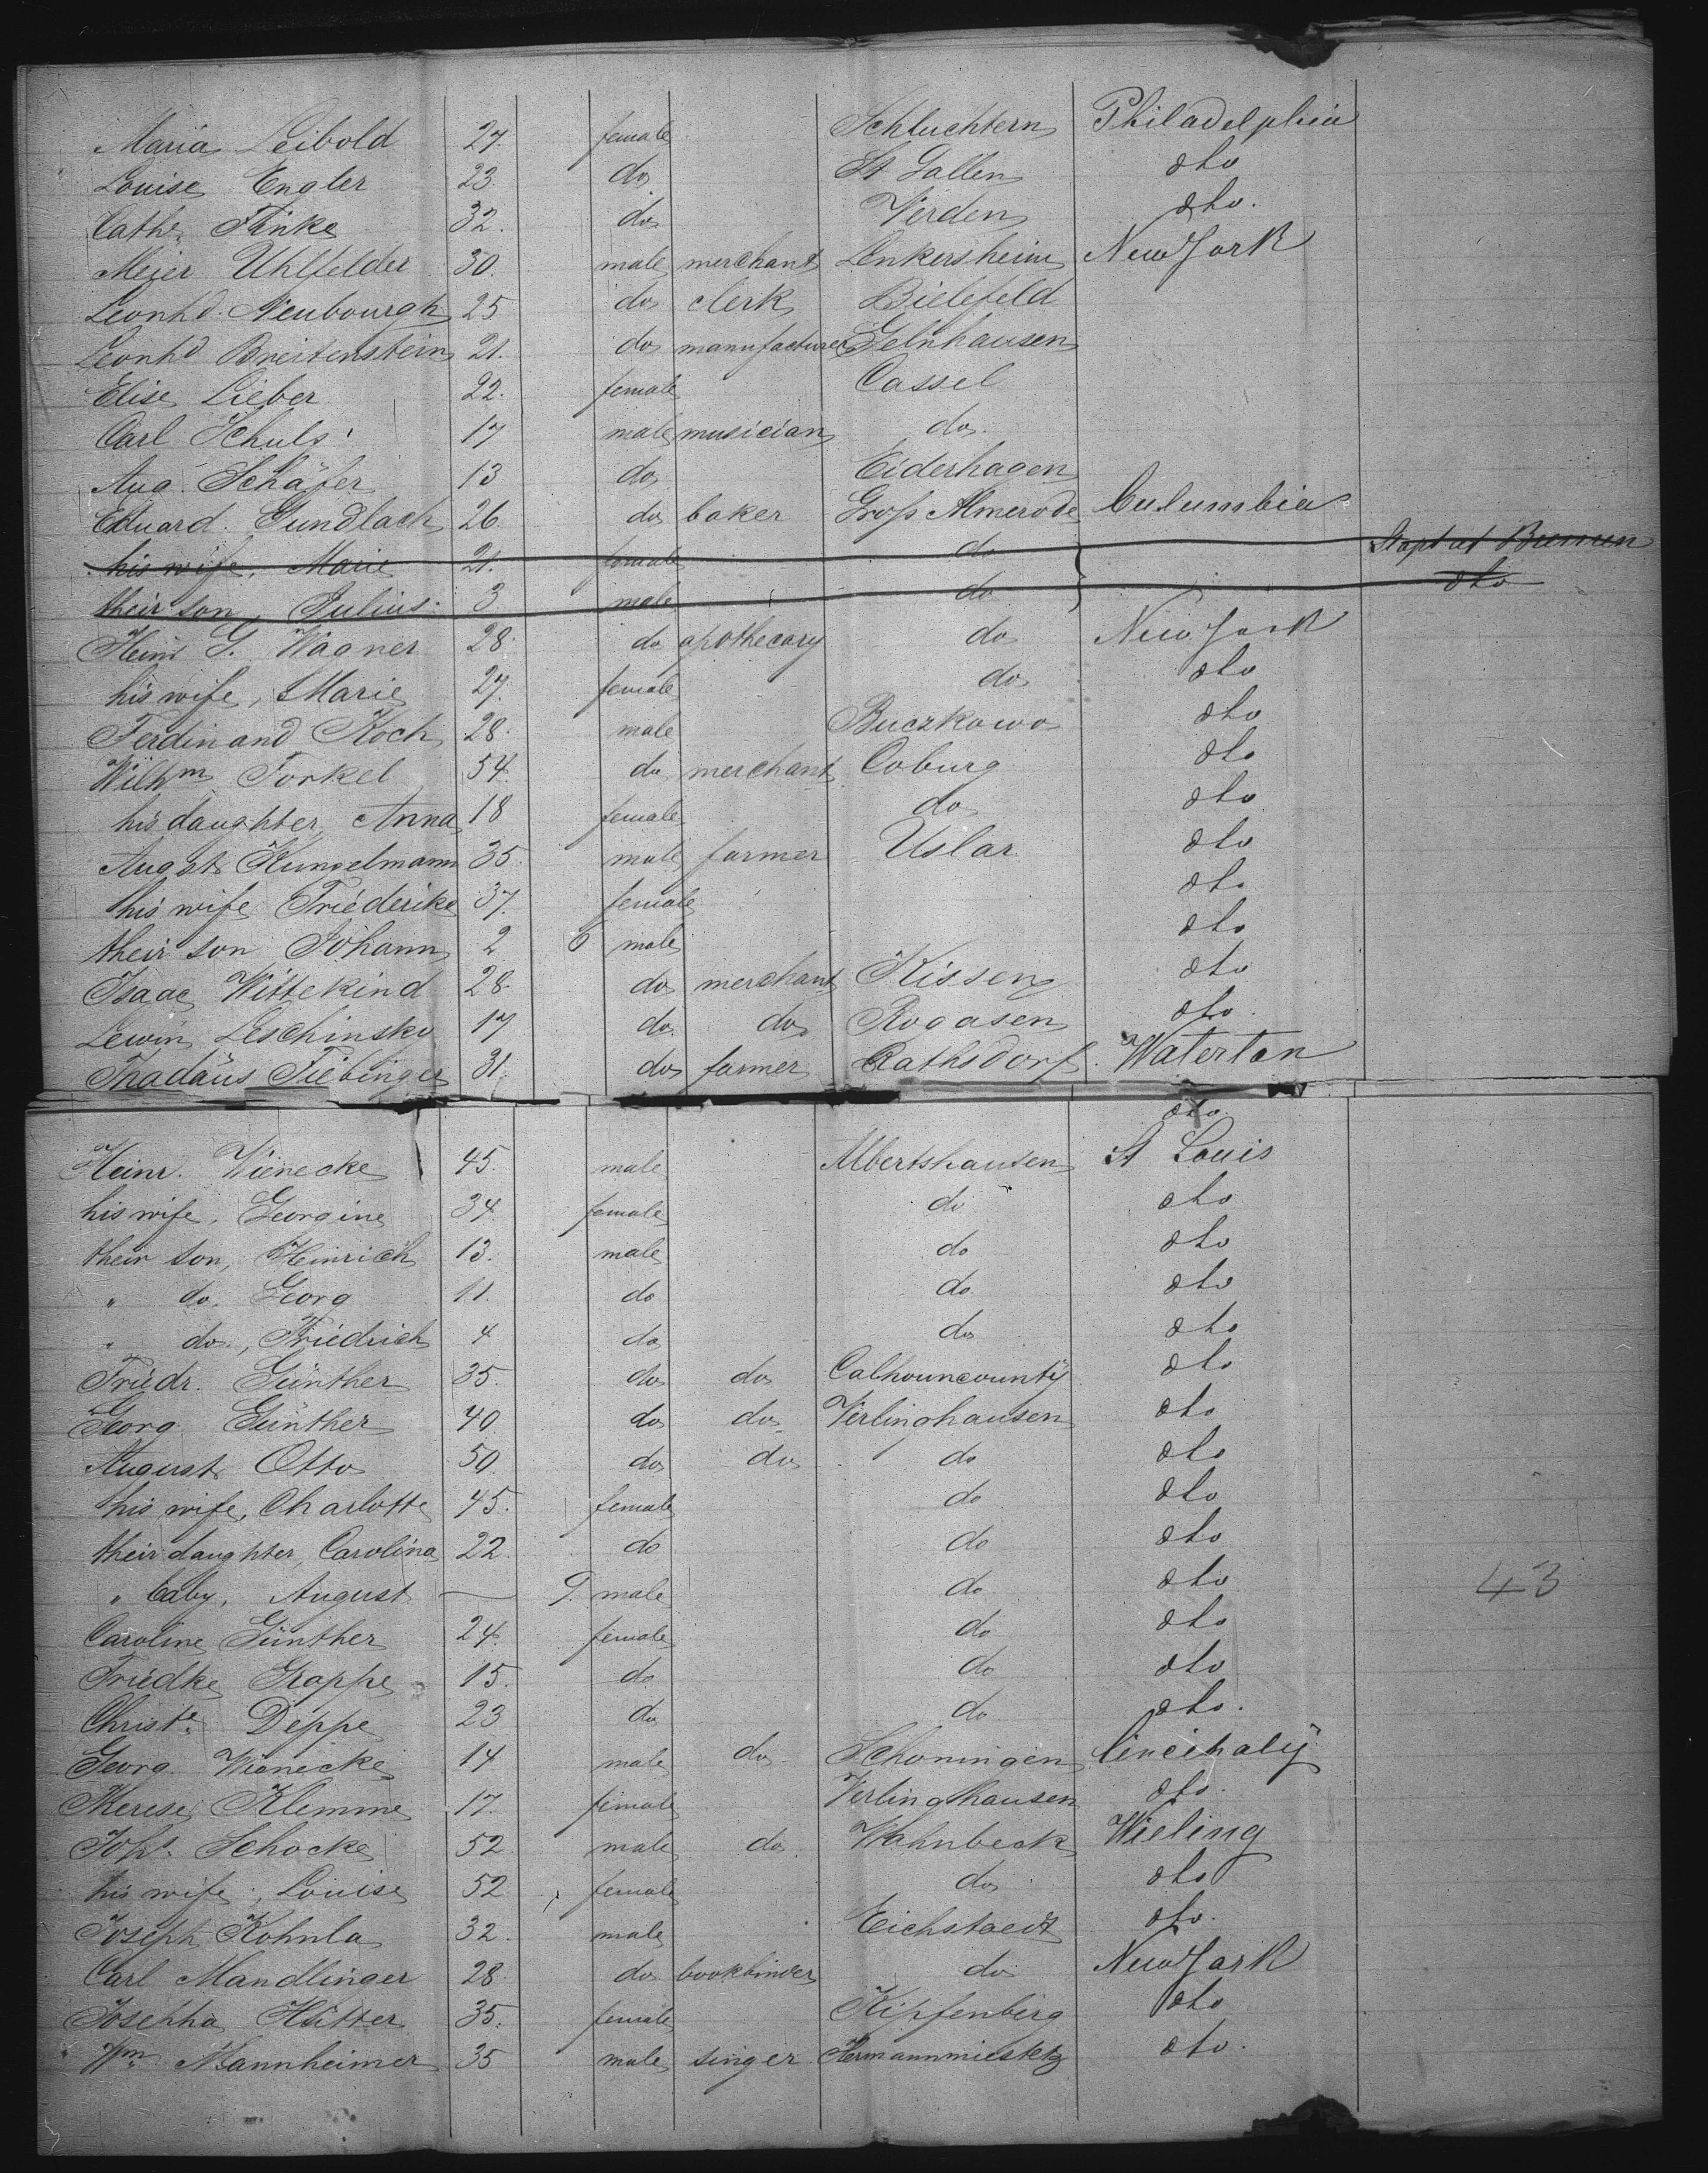 Maria Leibold 27. female Schluchtern Philadelphia
Louise Engler 23 do St Gallen dto
Cathe. Finke 32. do Verden dto.
Meier Uhlfelder 30. male merchant Lenkersheim New York
Leonhd. Neubourgh 25 do clerk Bielefeld
Leonhd Breitenstein 21. do manufacturer Gelnhausen
Elise Lieber 22. female Cassel
Carl Schuls 17 male musician do.
Aug. Schäfer 13 do Eiderhagen
Eduard. Gundlach 26 do baker Groß Almerode Culumbia
his wife, Marie 21. female do Stopt at Bremen
their son, Julius 3 male do dto
Heinr G. Wagner 28. do apothecary do New York
his wife, Marie 27. female do dto
Ferdinand Koch 28. male Buczkowo dto
Wilhm Forkel 54. do merchant Coburg dto
his daughter, Anna 18 female do dto
August Kunzelmann 35. male farmer Uslar dto
his wife Friederike 37. female dto
their son Johann 2 6 male dto
Isaac Wittekind 28. do merchant Kissen dto
Lewin Leschinsky 17 do. do Rogasen dto.
Thadäus Fiebinger 31. do farmer Rathsdorf. Waterton
dto.
Heinr. Wienecke 45. male Albertshausen St Louis
his wife, Georgine 34. female do dto
their son, Heinrich 13. male do dto
" do. Georg 11. do do dto
" do., Friedrich 4 do do dto
Friedr. Günther 35. do do Calhouncounty dto
Georg Günther 40 do do. Verlinghausen dto
August Otto 50 do do do dto
his wife, Charlotte 45. female do dto
their daughter, Carolina 22 do do dto
" baby, August — 9. male do dto 43
Caroline Günther 24. female do dto
Friedke Grappe 15. do do dto
Christe. Deppe 23 do do dto.
Georg Wienecke 14 male do Schoningen Cincinaty
Therese Klemme 17. female Verlinghausen dto.
Johs. Schocke 52 male do. Wahnbeck Wieling
his wife, Louise 52 female do dto
Joseph Kohnla 32. male Eichstaedt dto.
Carl Mandlinger 28. do bookbinder do New York
Josepha Hütter 35. female Kipfenberg dto
Wm. Mannheimer 35 male singer Hermannmiestetz dto.